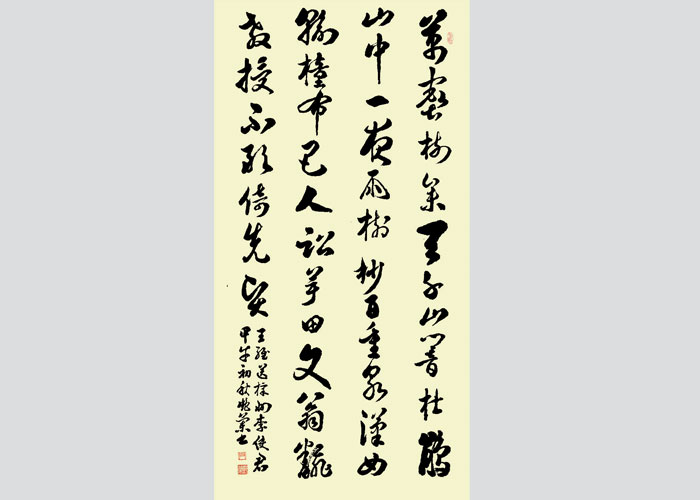 萬壑樹參天千山響杜鵑
山中一夜雨樹杪百重泉漢女
輸橦布巴人訟芋田文翁翻
教授不敢倚先賢
王維送梓州李使君
甲午初秋書